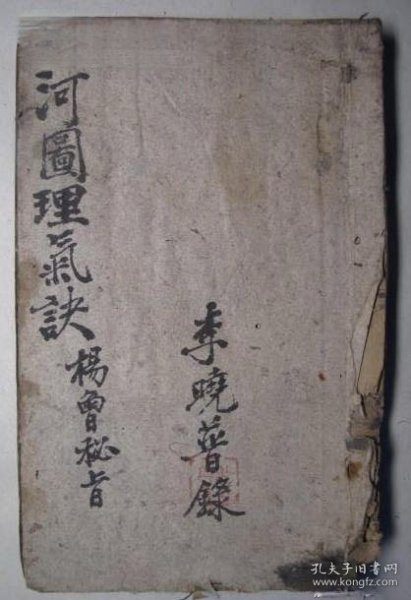 河圖理氣訣
楊曾秘旨
李曉普錄
孔夫子旧书网
www.kongfz.com